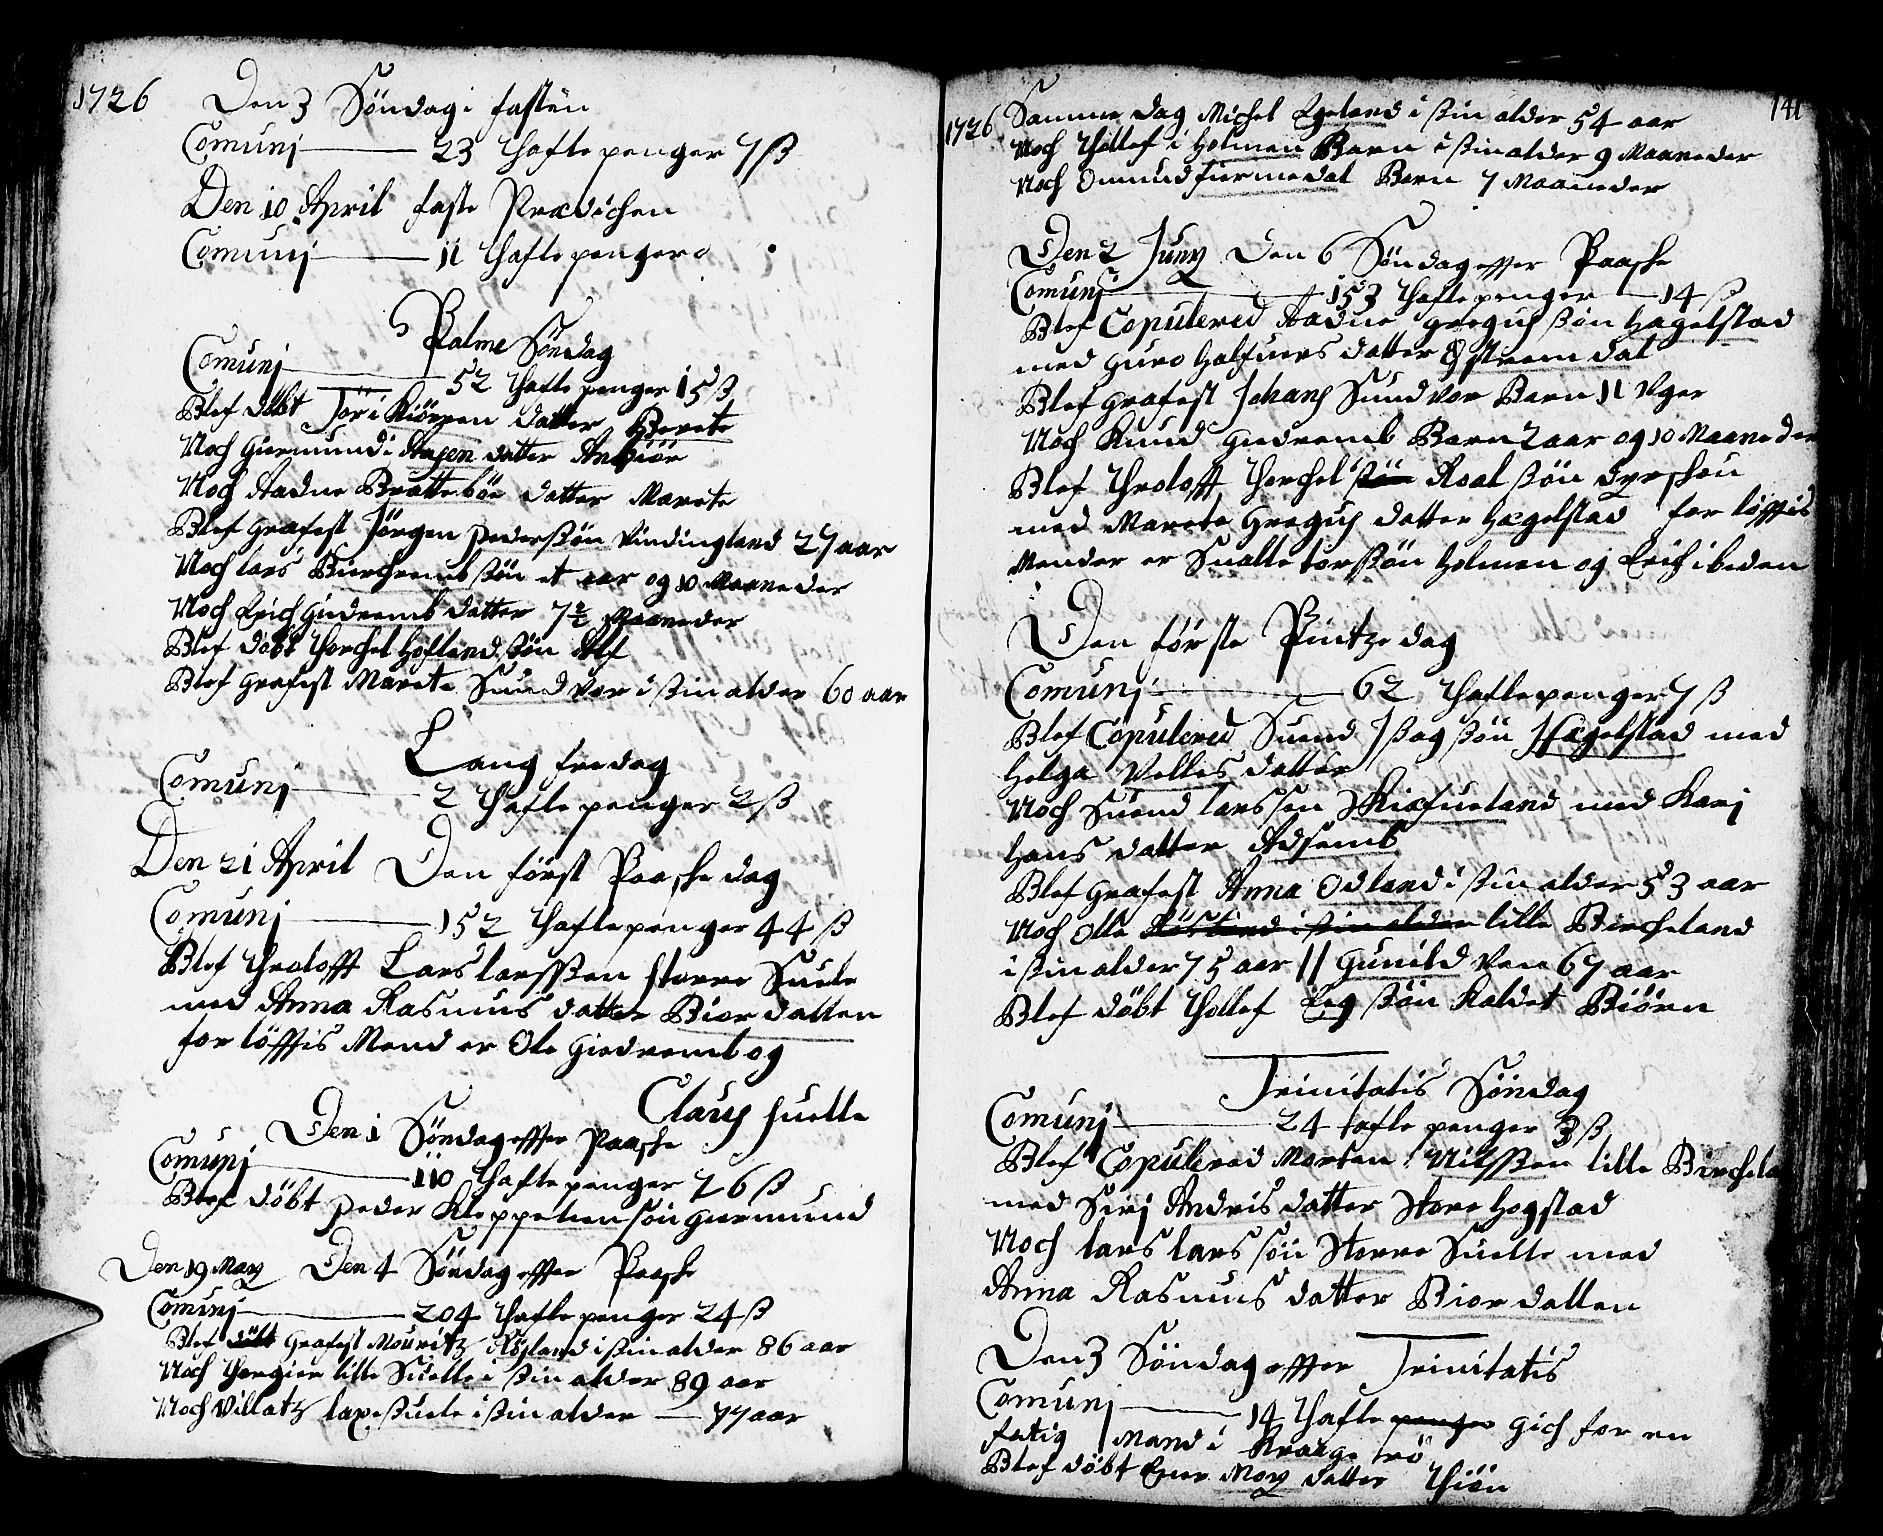 1726 Den 3 Söndag i fasten
Comunj 23 Thafle penger 7 ß
Den 10 April faste Prædichen
Comunj 11 Thafle penger 0
Palme Söndag
Comunj 52 Thafle penger 15 ß
Blef döbt Tör i Kiörren datter Berete
Noch Giermund i Aasen datter Anbiör
Noch Aadne Bratteböe datter Marete
Blef grafest Jörgen Pederßön Vindingland 27 aar
Noch Lars Bircheemb ßön et aar og 10 Maaneder
Noch Erich Giedremb datter 7 1/2 Maaneder
Blef döbt Thorchel Hofland ßön Alf
Blef grafest Marete Sundvor i ßin alder 60 aar
Lang fredag
Comunj 2 Thafle penger 2 ß
Den 21 April Den först Paaske dag
Comunj 152 Thafle penger 44 ß
Blef Throlofft Lars larsßen storre Suele
med Anna Rasmus datter Biordallen
for löfftis Mend er Ole Giedremb og
Claus Suelle
Den 1 Söndag effter Paaske
Comunj 110 Thafle penger 26 ß
Blef döbt Peder Kleppelien sön Giermund
Den 19 May Den 4 Söndag effter Paaske
Comunj 204 Thafle penger 24 ß
Blef döbt Grafest Mouritz Röyland i ßin alder 86 aar
Noch Thorgier lille Suelle i ßin alder 89 aar
Noch Villatz laxe Suele i ßin alder 77 aar
141
1726 Samme dag Michel Egeland i ßin alder 54 aar
Noch Thollef i Holmen Barn i ßin alder 9 Maaneder
Noch Omund furmedal Barn 7 Maaneder
Den 2 Juny Den 6 Söndag effter Paaske
Comunj 153 Thafle penger 14 ß
Blef Copulered Aadne Gregus ßön Hægelstad
med Guro Halfuers datter Østremdal
Blef grafest Johans Sundvor Barn 11 Uger
Noch Knud Giedremb Barn 2 aar og 10 Maaneder
Blef Throlofft Thorchel ßön Roal ßön Eyeskou
med Marete Gregus datter Hægelstad for löfftis
Mender er Sualle torsßön Holmen og Erich ibeden
Den förste Pintze dag
Comunj 62 Thafle penger 7 ß
Blef Copulered Suend Jßag ßön Hægelstad med
Helga Velles datter
Noch Suend larssøn Skiefueland med Karj
Hans datter Adsemb
Blef grafest Anna Odland i ßin alder 53 aar
Noch Olle Røsland i ßin alder lille Bircheland
i ßin alder 75 aar // Gunild Vee 67 aar
Blef döbt Thollef Eeg ßön Kaldet Biörn
Trinitatis Söndag
Comunj 24 tafle penger 3 ß
Blef Copulered Morten Nilsßen lille Birchela
med Sirj Andris datter Store Hogstad
Noch lars lars sön Storre Suelle med
Anna Rasmus datter Biordallen
Den 3 Söndag effter Trinitatis
Comunj 14 Thafle penger gich for en
fatig Mand i Kraage trö
Blef döbt Even Moy datter Thiön